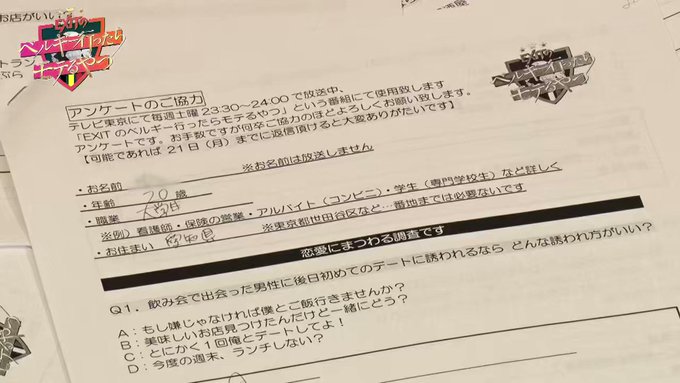 EXITの
ベルギー行ったら
モテるやつ
EXITの
ベルギー行ったら
モテるやつ
お店がいい
アンケートのご協力
テレビ東京にて毎週土曜 23:30~24:00 で放送中、
「EXIT のベルギー行ったらモテるやつ」という番組にて使用致します
アンケートです。お手数ですが何卒ご協力のほどよろしくお願い致します。
【可能であれば 21 日(月)までに返信頂けると大変ありがたいです】
※お名前は放送しません
・お名前
・年齢 20 歳
・職業 大学生
※例)看護師・保険の営業・アルバイト(コンビニ)・学生(専門学校生)など詳しく
・お住まい 愛知県 ※東京都世田谷区など…番地までは必要ないです
恋愛にまつわる調査です
Q1. 飲み会で出会った男性に後日初めてのデートに誘われるなら どんな誘われ方がいい?
A:もし嫌じゃなければ僕とご飯行きませんか?
B:美味しいお店見つけたんだけど一緒にどう?
C:とにかく1回俺とデートしてよ!
D:今度の週末、ランチしない?